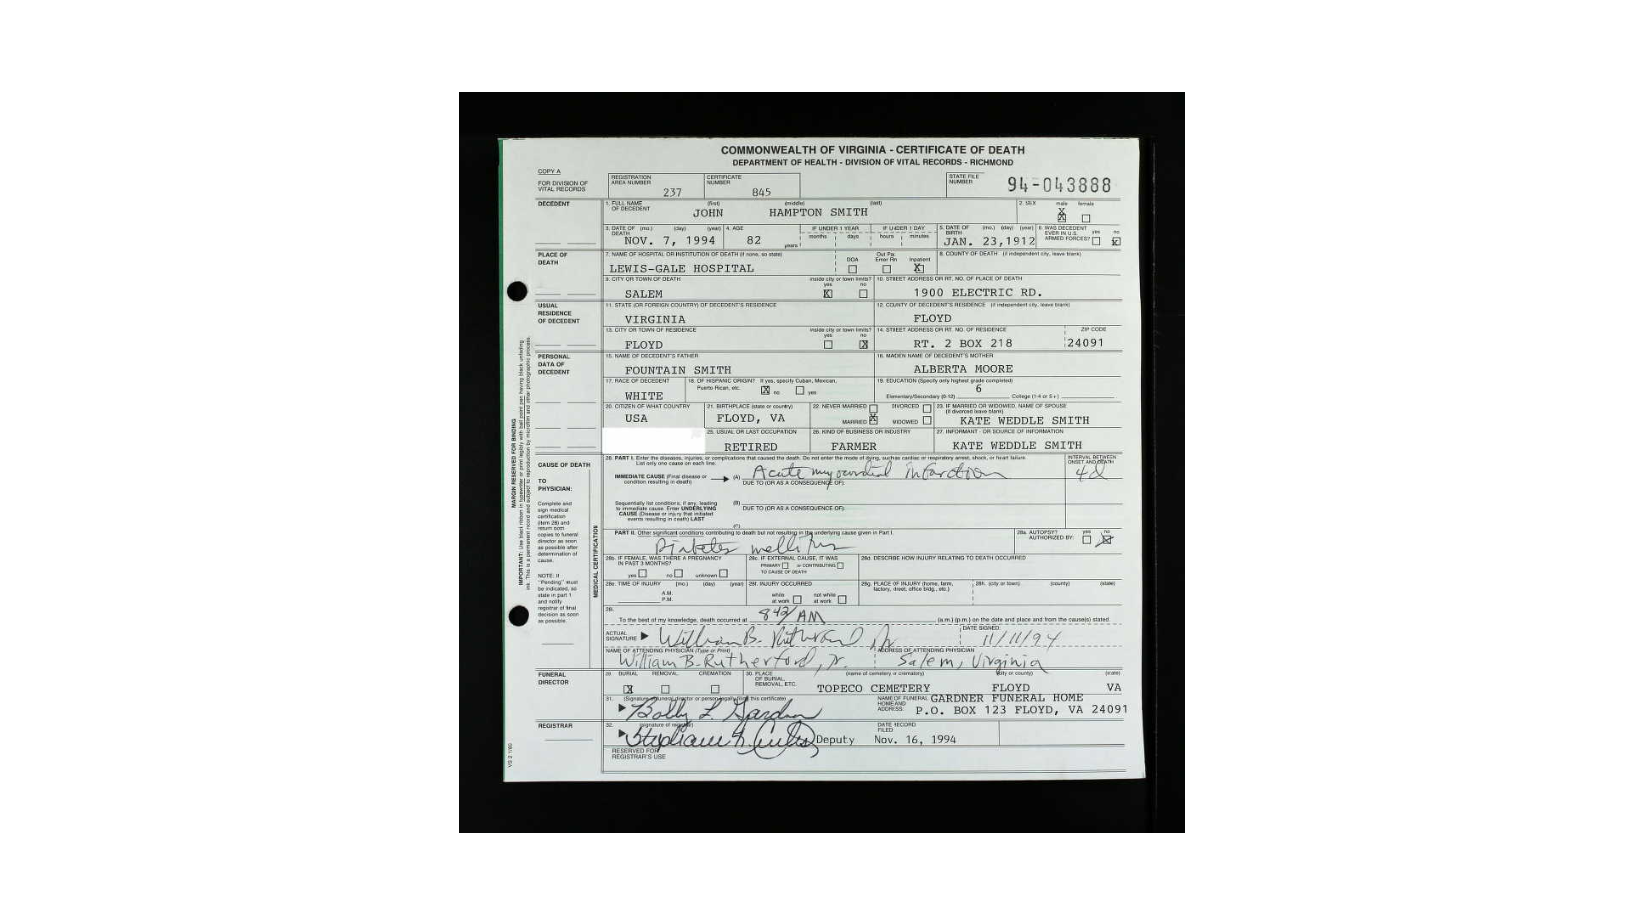 COMMONWEALTH OF VIRGINIA - CERTIFICATE OF DEATH
DEPARTMENT OF HEALTH - DIVISION OF VITAL RECORDS - RICHMOND
COPY A
FOR DIVISION OF VITAL RECORDS
REGISTRATION AREA NUMBER 237
CERTIFICATE NUMBER 845
STATE FILE NUMBER 94-043888
DECEDENT
1. FULL NAME OF DECEDENT (first) (middle) (last)
JOHN HAMPTON SMITH
2. SEX male X female
3. DATE OF DEATH (mo.) (day) (year)
NOV. 7, 1994
4. AGE 82 years
IF UNDER 1 YEAR months days
IF UNDER 1 DAY hours minutes
5. DATE OF BIRTH (mo.) (day) (year)
JAN. 23,1912
6. WAS DECEDENT EVER IN U.S. ARMED FORCES? yes no X
PLACE OF DEATH
7. NAME OF HOSPITAL OR INSTITUTION OF DEATH (if none, so state)
LEWIS-GALE HOSPITAL
DOA Inpatient X
8. COUNTY OF DEATH (if independent city, leave blank)
9. CITY OR TOWN OF DEATH inside city or town limits? yes X no
SALEM
10. STREET ADDRESS OR RT. NO. OF PLACE OF DEATH
1900 ELECTRIC RD.
USUAL RESIDENCE OF DECEDENT
11. STATE (OR FOREIGN COUNTRY) OF DECEDENT'S RESIDENCE
VIRGINIA
12. COUNTY OF DECEDENT'S RESIDENCE (if independent city, leave blank)
FLOYD
13. CITY OR TOWN OF RESIDENCE inside city or town limits? yes no X
FLOYD
14. STREET ADDRESS OR RT. NO. OF RESIDENCE ZIP CODE
RT. 2 BOX 218 24091
PERSONAL DATA OF DECEDENT
15. NAME OF DECEDENT'S FATHER
FOUNTAIN SMITH
16. MAIDEN NAME OF DECEDENT'S MOTHER
ALBERTA MOORE
17. RACE OF DECEDENT
WHITE
18. OF HISPANIC ORIGIN? If yes, specify Cuban, Mexican, Puerto Rican, etc. X no yes
19. EDUCATION (Specify only highest grade completed)
6
Elementary/Secondary (0-12) College (1-4 or 5+)
20. CITIZEN OF WHAT COUNTRY
USA
21. BIRTHPLACE (state or country)
FLOYD, VA
22. NEVER MARRIED DIVORCED
MARRIED X WIDOWED
23. IF MARRIED OR WIDOWED, NAME OF SPOUSE (if divorced leave blank)
KATE WEDDLE SMITH
25. USUAL OR LAST OCCUPATION
RETIRED
26. KIND OF BUSINESS OR INDUSTRY
FARMER
27. INFORMANT - OR SOURCE OF INFORMATION
KATE WEDDLE SMITH
CAUSE OF DEATH
TO PHYSICIAN:
Complete and sign medical certification (item 28) and return both copies to funeral director as soon as possible after determination of cause.
NOTE: If "Pending" must be indicated, so state in part 1 and notify registrar of final decision as soon as possible.
MEDICAL CERTIFICATION
28. PART I. Enter the diseases, injuries, or complications that caused the death. Do not enter the mode of dying, such as cardiac or respiratory arrest, shock, or heart failure. List only one cause on each line.
INTERVAL BETWEEN ONSET AND DEATH
IMMEDIATE CAUSE (Final disease or condition resulting in death) (A) Acute myocardial infarction 4d
DUE TO (OR AS A CONSEQUENCE OF):
Sequentially list conditions, if any, leading to immediate cause. Enter UNDERLYING CAUSE (Disease or injury that initiated events resulting in death) LAST
(B)
DUE TO (OR AS A CONSEQUENCE OF):
(C)
PART II. Other significant conditions contributing to death but not resulting in the underlying cause given in Part I.
Diabetes mellitus
28a. AUTOPSY? AUTHORIZED BY: yes no
28b. IF FEMALE, WAS THERE A PREGNANCY IN PAST 3 MONTHS? yes no unknown
28c. IF EXTERNAL CAUSE, IT WAS PRIMARY or CONTRIBUTING TO CAUSE OF DEATH
28d. DESCRIBE HOW INJURY RELATING TO DEATH OCCURRED
28e. TIME OF INJURY (mo.) (day) (year) A.M. P.M.
28f. INJURY OCCURRED while at work not while at work
28g. PLACE OF INJURY (home, farm, factory, street, office bldg., etc.)
28h. (city or town) (county) (state)
To the best of my knowledge, death occurred at 842 AM (a.m.) (p.m.) on the date and place and from the cause(s) stated.
ACTUAL SIGNATURE William B. Rutherford, Jr.
DATE SIGNED: 11/11/94
NAME OF ATTENDING PHYSICIAN (Type or Print)
William B. Rutherford, Jr.
ADDRESS OF ATTENDING PHYSICIAN
Salem, Virginia
FUNERAL DIRECTOR
29. BURIAL X REMOVAL CREMATION
30. PLACE OF BURIAL, REMOVAL, ETC. (name of cemetery or crematory) (city or county) (state)
TOPECO CEMETERY FLOYD VA
31. (Signature of funeral director or person legally filing this certificate)
Bobby L. Gardner
NAME OF FUNERAL HOME AND ADDRESS:
GARDNER FUNERAL HOME
P.O. BOX 123 FLOYD, VA 24091
REGISTRAR
32. (signature of registrar)
Deputy
DATE RECORD FILED
Nov. 16, 1994
RESERVED FOR REGISTRAR'S USE
MARGIN RESERVED FOR BINDING